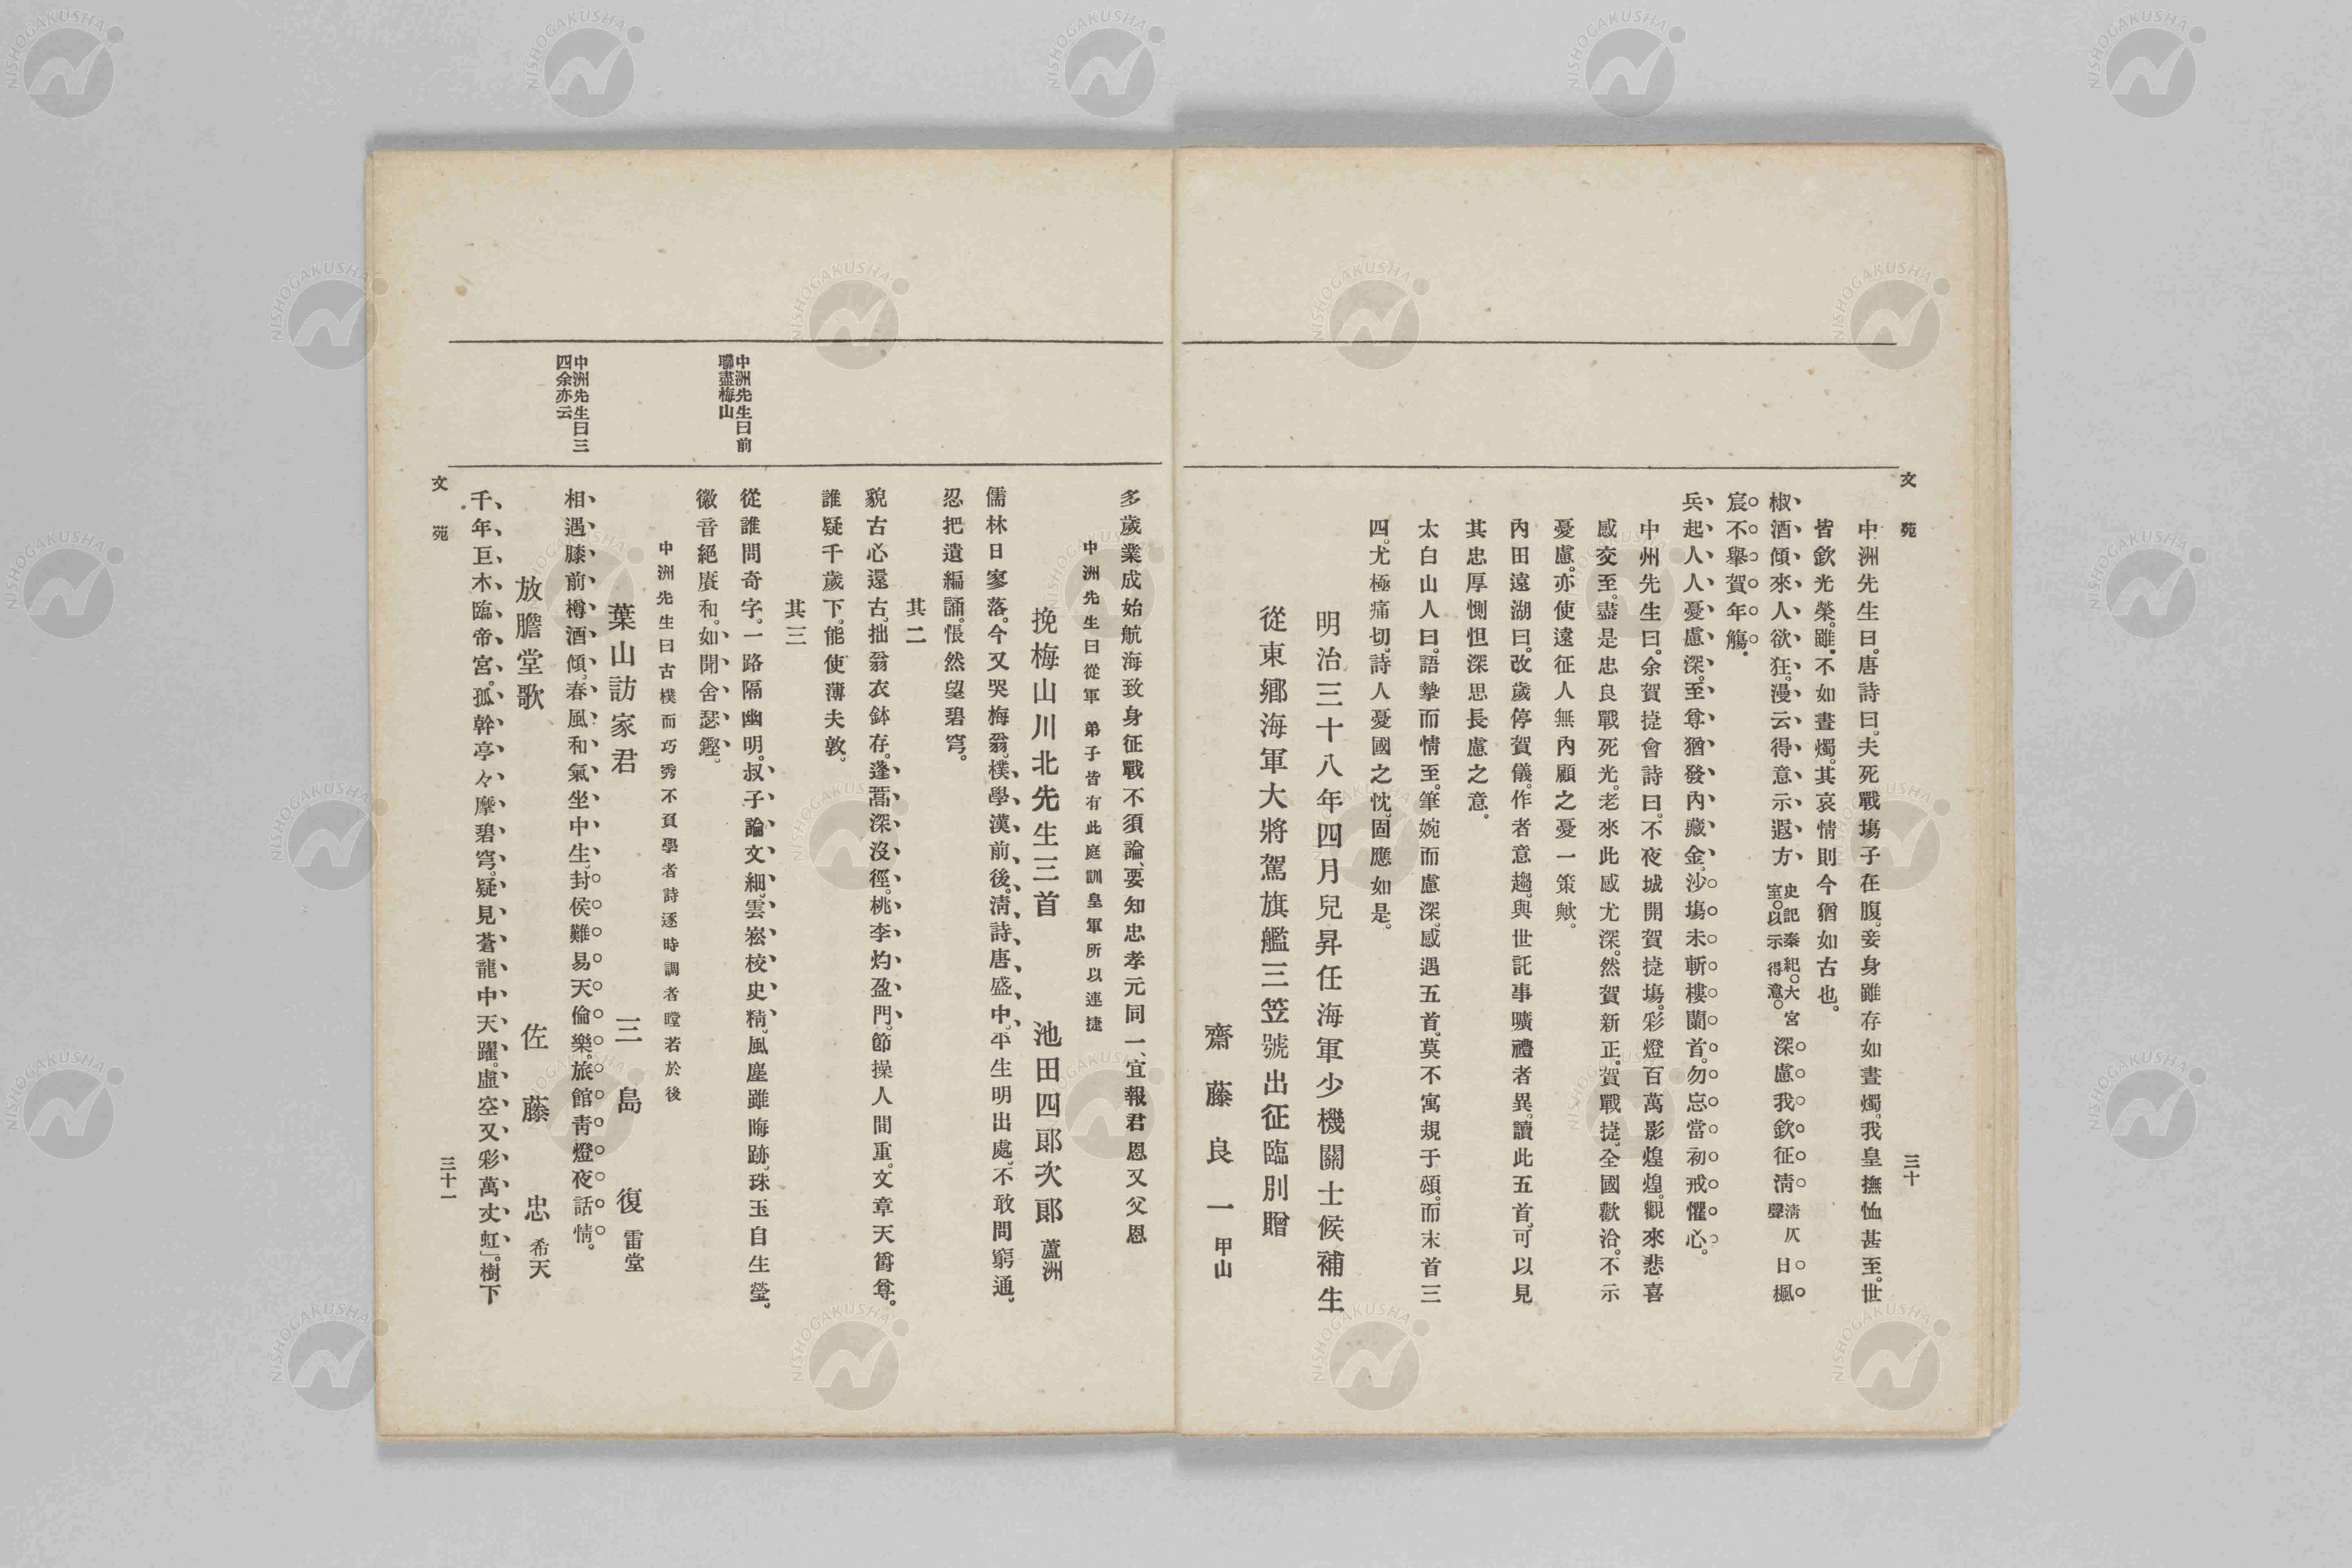 文苑
三十
中洲先生曰。唐詩曰。夫死戰塲子在腹。妾身雖存如晝燭。我皇撫恤甚至。世
皆欽光榮。雖不如晝燭。其哀情則今猶如古也。
椒酒傾來人欲狂。漫云得意示遐方 史記秦紀。大宮室。以示得意。 深慮我欽征淸 淸仄聲 日楓
宸不擧賀年觴。
兵起人人憂慮深。至尊猶發內藏金。沙塲未斬樓蘭首。勿忘當初戒懼心。
中州先生曰。余賀捷會詩曰。不夜城開賀捷塲。彩燈百萬影煌煌。觀來悲喜
感交至。盡是忠良戰死光。老來此感尤深。然賀新正。賀戰捷。全國歡洽。不示
憂慮。亦使遠征人無內顧之憂一策歟。
內田遠湖曰。改歲停賀儀。作者意趨。與世託事曠禮者異。讀此五首。可以見
其忠厚惻怛深思長慮之意。
太白山人曰。語摯而情至。筆婉而慮深。感遇五首。莫不寓規于頌。而末首三
四。尤極痛切。詩人憂國之忱。固應如是。
明治三十八年四月兒昇任海軍少機關士候補生
從東鄕海軍大將駕旗艦三笠號出征臨別贈
齋藤良一 甲山
多歲業成始航海致身征戰不須論、要知忠孝元同一、宜報君恩又父恩
中洲先生曰從軍弟子皆有此庭訓皇軍所以連捷
挽梅山川北先生三首 池田四郎次郎 蘆洲
儒林日寥落。今又哭梅翁。樸學漢前後。淸詩唐盛中。平生明出處。不敢問窮通。
忍把遺編誦。悵然望碧穹。
其二
貌古心還古。拙翁衣鉢存。蓬蒿深沒徑。桃李灼盈門。節操人間重。文章天爵尊。
誰疑千歲下。能使薄夫敦。
其三
中洲先生曰前
聯盡梅山
從誰問奇字。一路隔幽明。叔子論文細。雲崧校史精。風塵雖晦跡。珠玉自生瑩。
徽音絕賡和。如聞舍瑟鏗。
中洲先生曰古樸而巧秀不負學者詩逐時調者瞠若於後
葉山訪家君 三島復 雷堂
中洲先生曰三
四余亦云
相遇膝前樽酒傾。春風和氣坐中生。封侯難易天倫樂。旅館靑燈夜話情。
放膽堂歌 佐藤忠 希天
千年巨木臨帝宮。孤幹亭々摩碧穹。疑見蒼龍中天躍。虛空又彩萬丈虹」。樹下
文苑
三十一